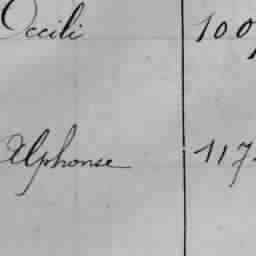 Occili 100
Alphonse 117